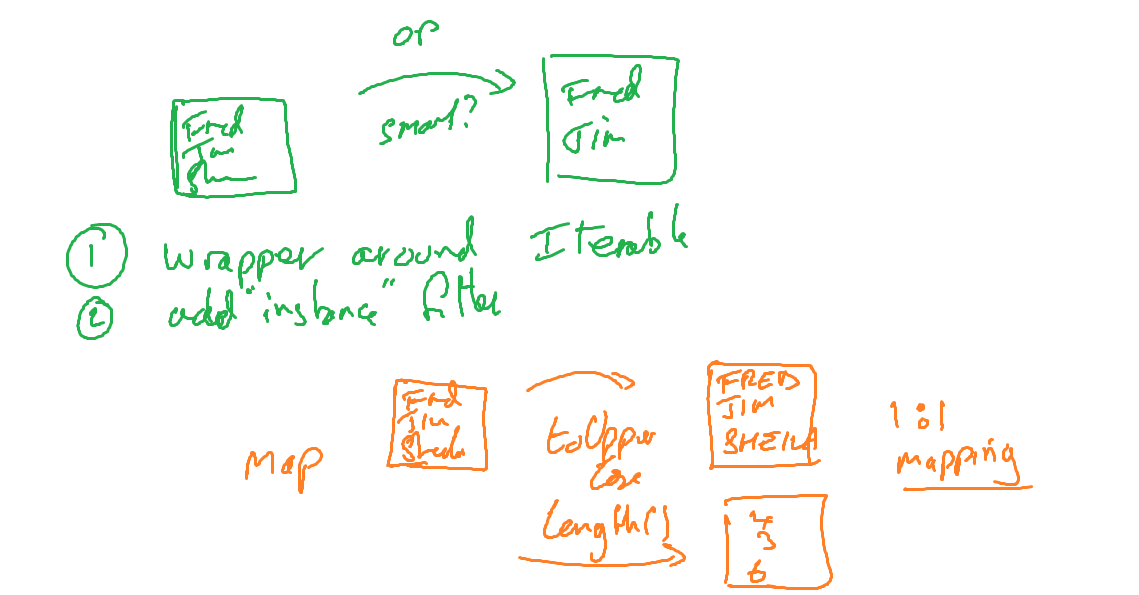 op
smart?
Fred
Jim
Fred
Jim
① wrapper around Iterable
② add "instance" filter
Map
Fred
Jim
Sheila
toUpper
Case
FRED
JIM
SHEILA
1:1
mapping
length()
4
3
6